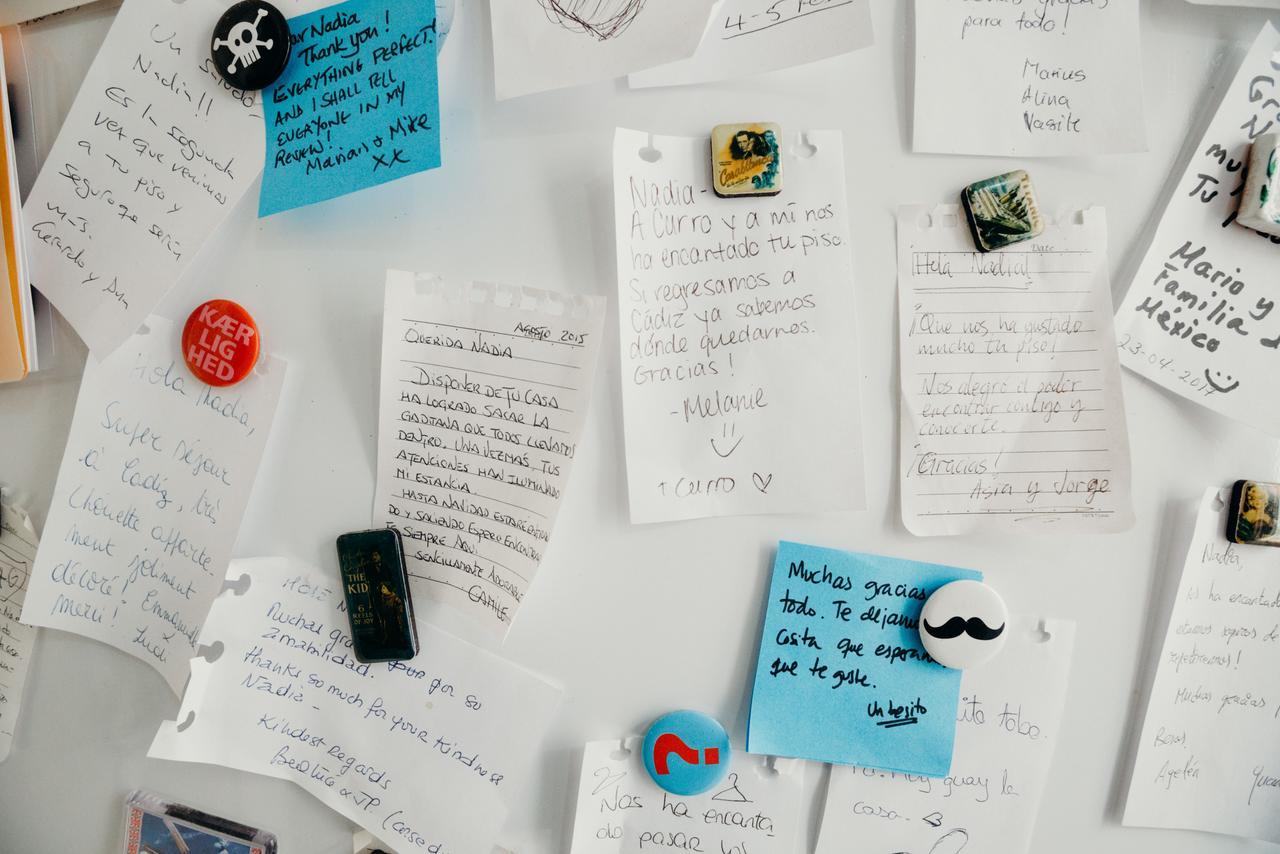 Un saludo
Nadia!!
Es la segunda
vez que venimos
a tu piso y
seguro que serán
más.
Gerardo y
Nadia
Thank you!
EVERYTHING PERFECT!
AND I SHALL TELL
EVERYONE IN MY
REVIEW!
Marian & Mike
xx
4-5
para todo!
Marius
Alina
Vasile
Tu
Mario y
Familia
México
23-04-2017
KÆR
LIG
HED
Hola Nadia,
Super séjour
à Cadiz, très
chouette apparte
ment joliment
décoré! Emmanuelle
merci!
AGOSTO 2015
QUERIDA NADIA
DISPONER DE TU CASA
HA LOGRADO SACAR LA
GADITANA QUE TODOS LLEVAMOS
DENTRO. UNA VEZ MÁS, TUS
ATENCIONES HAN ILUMINADO
MI ESTANCIA.
HASTA NAVIDAD ESTARÉ
DO Y SALIENDO ESPERO ENCONTRA
SIEMPRE AQUÍ
SENCILLAMENTE ADORABLE
CAMILO
Casablanca
Nadia-
A Curro y a mí nos
ha encantado tu piso.
Si regresamos a
Cádiz ya sabemos
dónde quedarnos.
Gracias!
-Melanie
+ Curro
Date
Hola Nadia!
¡Que nos ha gustado
mucho tu piso!
Nos alegró el poder
encontrar contigo y
conocerte.
¡Gracias!
Asia y Jorge
THE
KID
6
REELS
OF JOY
Muchas
amabilidad. por su
thanks so much for your kindness
Nadia-
Kindest regards
Muchas gracias
todo. Te dejamos
cosita que
que te guste.
Un besito
muy guay la
casa. <3
?
Nos ha encanta
do pasar los
Nadia,
ha encantado
estamos seguros de
repetiremos!
Muchas gracias
Besos.
Ayelén